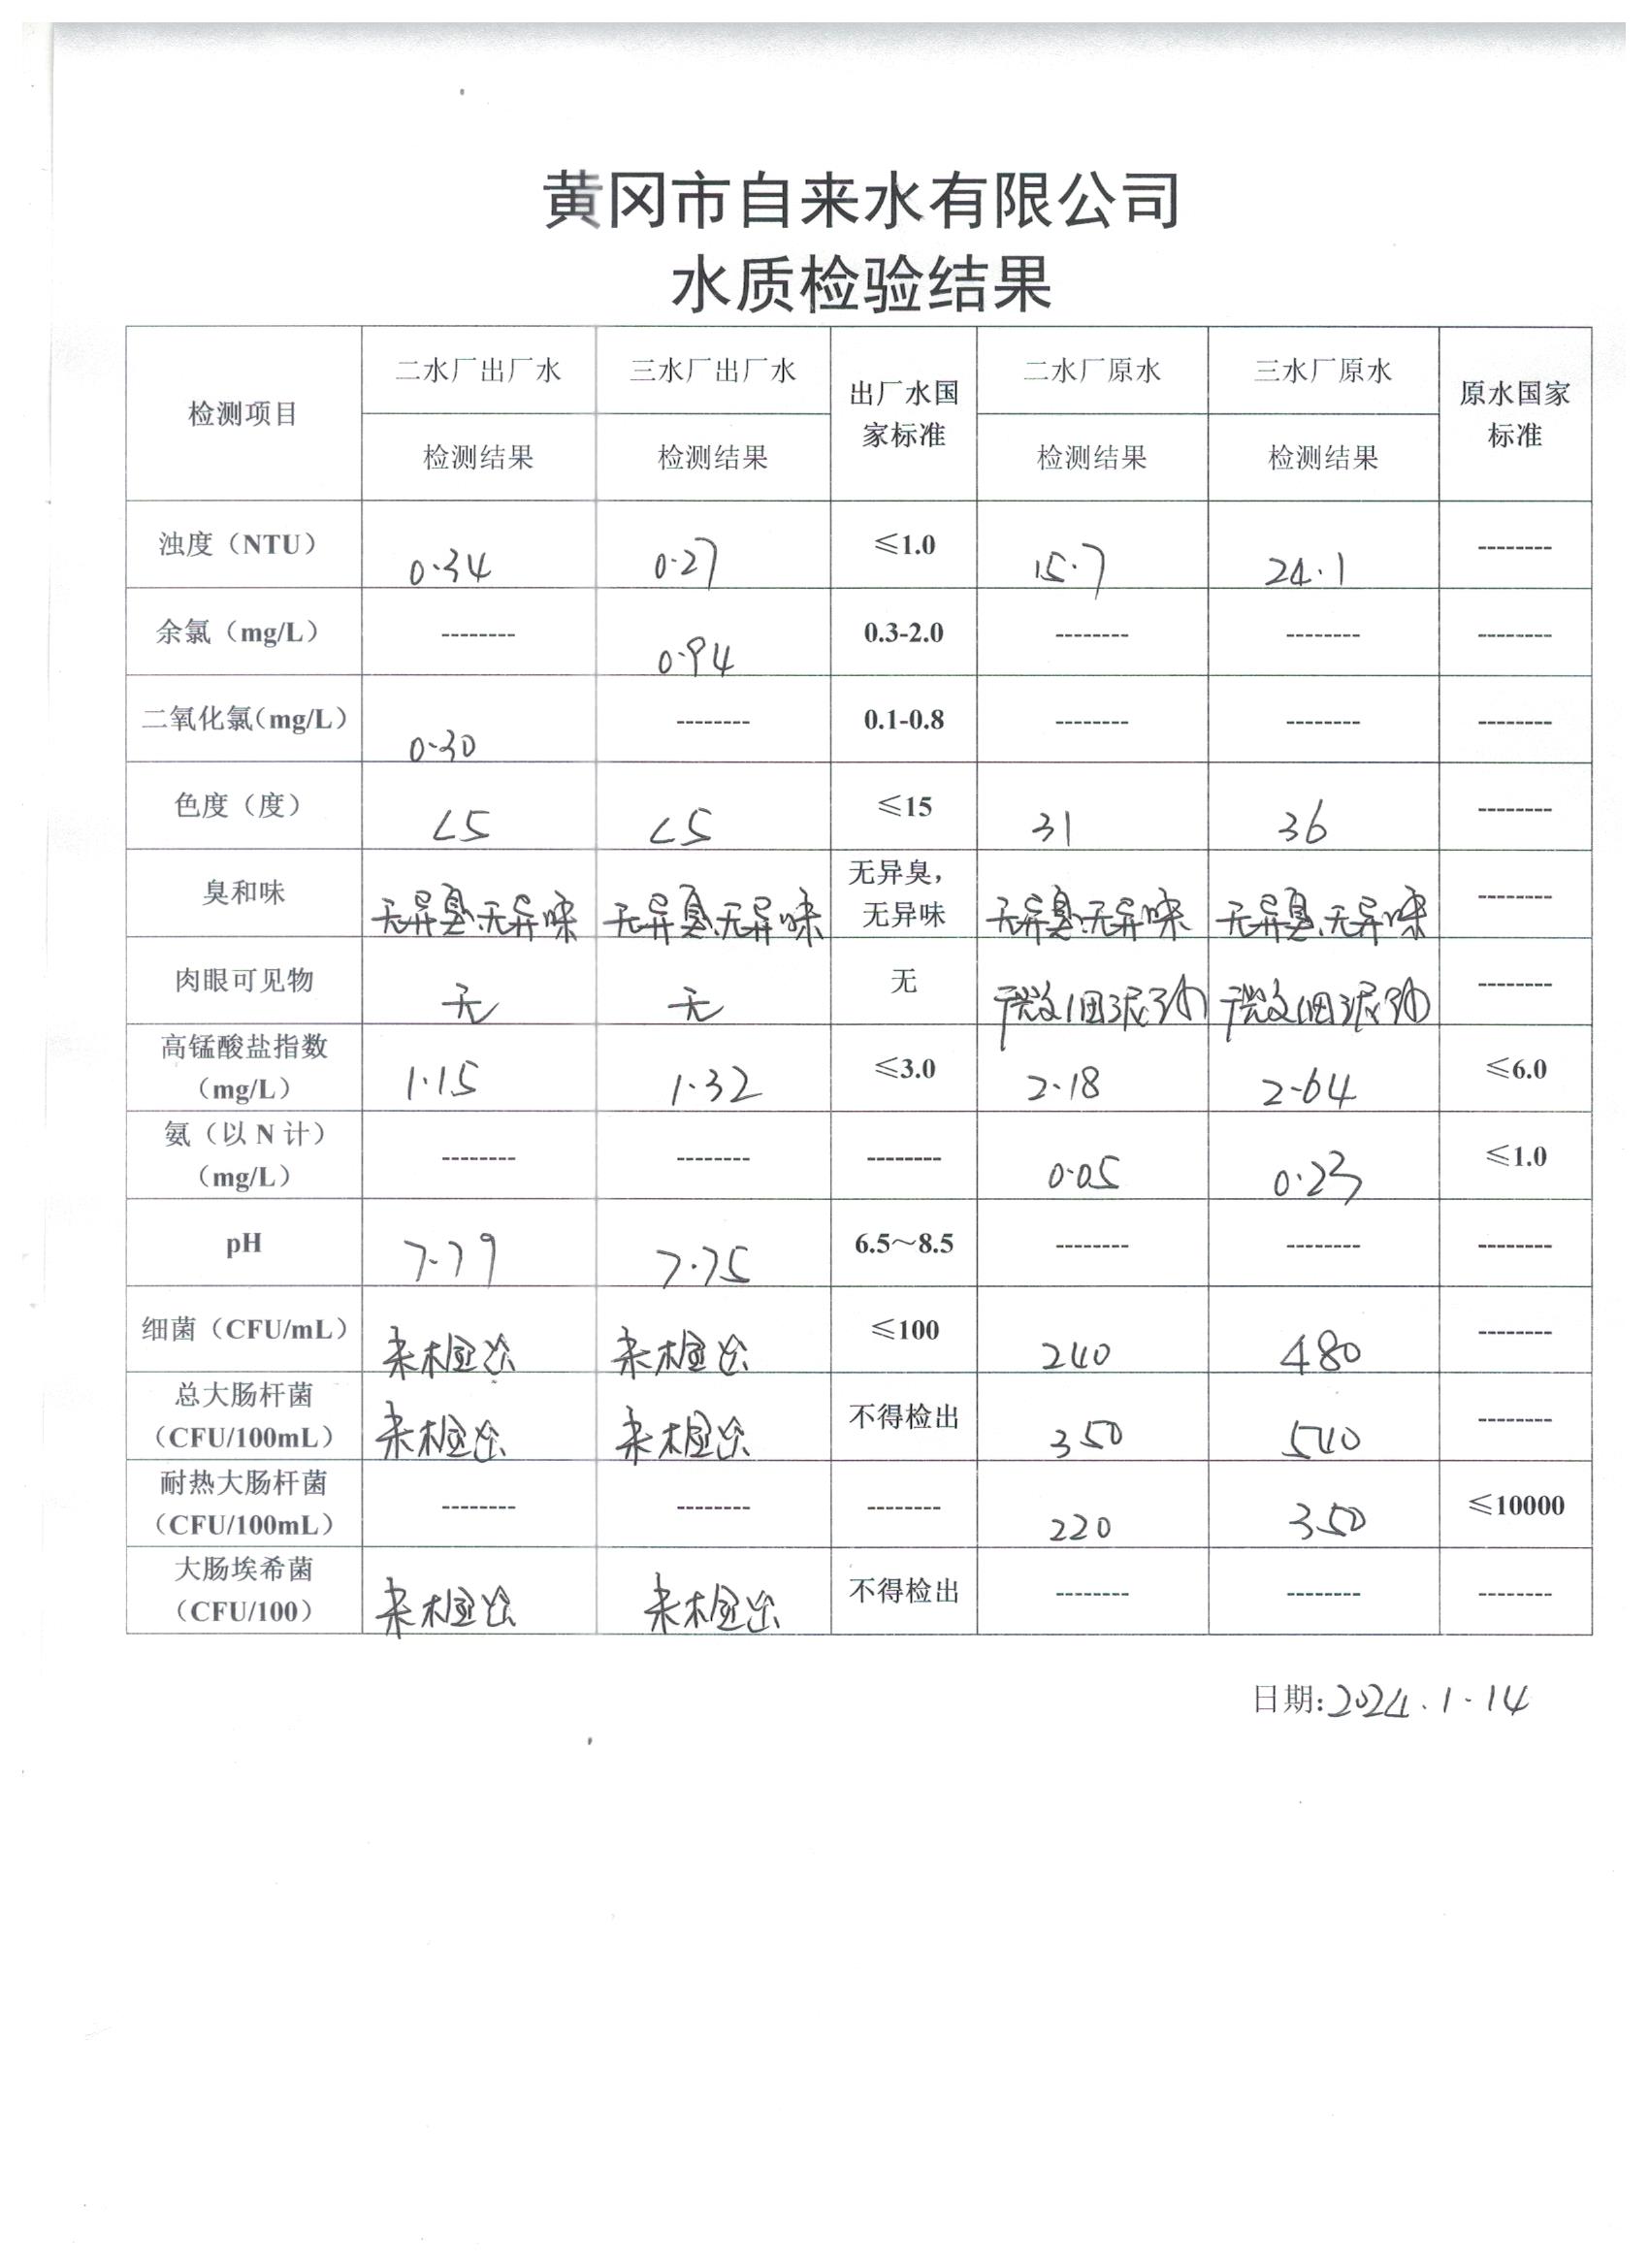 黄冈市自来水有限公司
水质检验结果
检测项目 二水厂出厂水 三水厂出厂水 出厂水国家标准 二水厂原水 三水厂原水 原水国家标准
检测结果 检测结果 检测结果 检测结果
浊度（NTU） 0.34 0.27 ≤1.0 15.7 24.1 --------
余氯（mg/L） -------- 0.94 0.3-2.0 -------- -------- --------
二氧化氯（mg/L） 0.30 -------- 0.1-0.8 -------- -------- --------
色度（度） <5 <5 ≤15 31 36 --------
臭和味 无异臭、无异味 无异臭、无异味 无异臭，无异味 无异臭、无异味 无异臭、无异味 --------
肉眼可见物 无 无 无 微细泥沙 微细泥沙 --------
高锰酸盐指数（mg/L） 1.15 1.32 ≤3.0 2.18 2.64 ≤6.0
氨（以 N 计）（mg/L） -------- -------- -------- 0.05 0.23 ≤1.0
pH 7.79 7.75 6.5～8.5 -------- -------- --------
细菌（CFU/mL） 未检出 未检出 ≤100 240 480 --------
总大肠杆菌（CFU/100mL） 未检出 未检出 不得检出 350 540 --------
耐热大肠杆菌（CFU/100mL） -------- -------- -------- 220 350 ≤10000
大肠埃希菌（CFU/100） 未检出 未检出 不得检出 -------- -------- --------
日期:2024.1.14